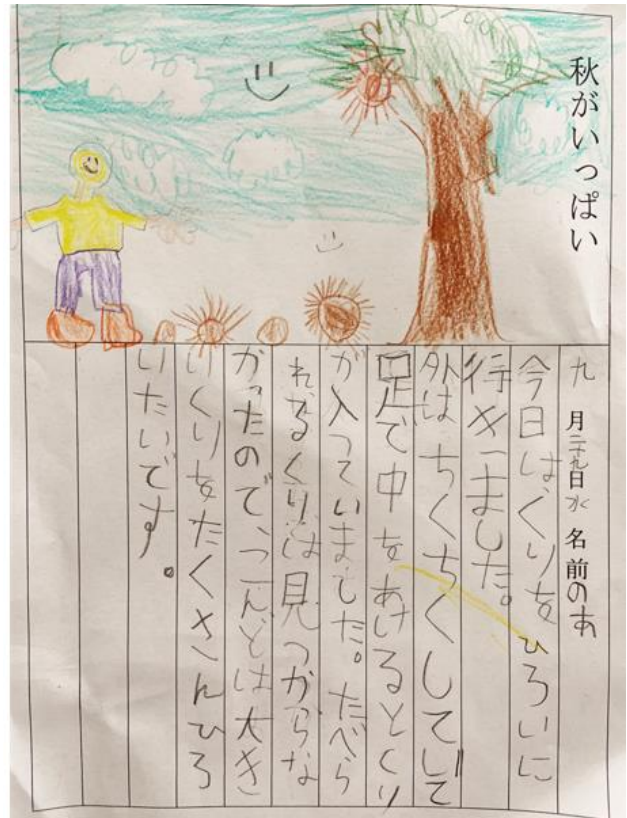 秋がいっぱい
九月二十九日水 名前のあ
今日はくりをひろいに
行きました。
外はちくちくしてして
足で中をあけるとくり
が入っていました。たべら
れるくりは見つからな
かったので、こんどは大き
いくりをたくさんひろ
いたいです。